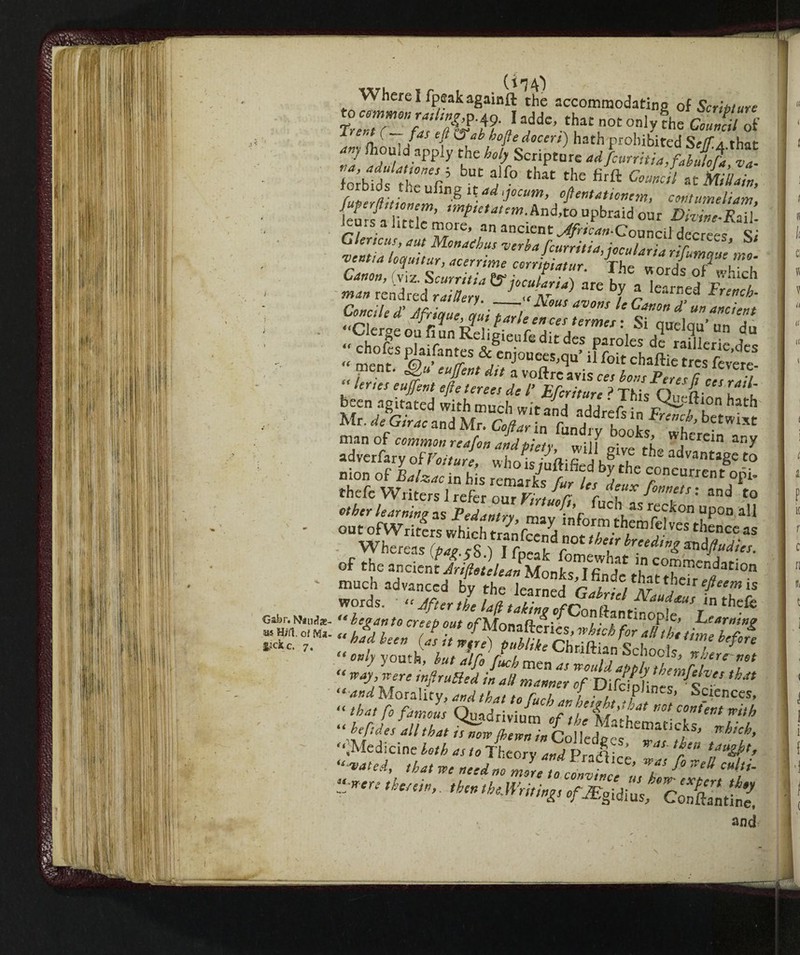 (174)
Where I ſpeak againſt the accommodating of Scripture
to common railing, p.49. I adde, that not only the Council of
Trent (— fas eſt & ab hoſte doceri) hath prohibited Seſſ.4.that
any ſhould apply the holy Scripture ad ſcurritia, fabuloſa, va-
na, adulationes; but alſo that the firſt Council at Millain,
forbids the uſing it ad jocum, oſtentationem, contumeliam,
ſuperſtitionem, impietatem. And, to upbraid our Divine-Rail-
leurs a little more, an ancient African-Council decrees, Si
Clericus, aut Monachus verba ſcurritia, jocularia riſumque mo-
ventia loquitur, acerrime corripiatur. The words of which
Canon, (viz. Scurritia & jocularia) are by a learned French-
man rendred raillery. —— "Nous avons le Canon d' un ancient
Concile d' Afrique, qui parle en ces termes: Si quelqu' un du
"Clerge ou ſi un Religieuſe dit des paroles de raillerie, des
"choſes plaiſantes & enjouees, qu' il ſoit chaſtie tres ſevere-
"ment. Qu' euſſent dit a voſtre avis ces bons Peres ſi ces rail-
"leries euſſent eſte terees de l' Eſcriture? This Queſtion hath
been agitated with much wit and addreſs in French, betwixt
Mr. de Girac and Mr. Coſtar in ſundry books, wherein any
man of common reaſon and piety, will give the advantage to
adverſary of Voiture, who is juſtified by the concurrent opi-
nion of Balzac in his remarks ſur les deux ſonnets: and to
theſe Writers I refer our Virtuoſi, ſuch as reckon upon all
other learning as Pedantry, may inform themſelves thence as
out of Writers which tranſcend not their breeding and ſtudies.
Whereas (pag.58.) I ſpeak ſomewhat in commendation
of the ancient Ariſtotelean Monks, I finde that their eſteem is
much advanced by the learned Gabriel Naudæus in theſe
words. "After the laſt taking of Conſtantinople, Learning
Gabr. Naudæ-
us Hiſt. of Ma-
gick c. 7.
"began to creep out of Monaſteries, which for all the time before
"had been (as it were) publike Chriſtian Schools, where not
"only youth, but alſo ſuch men as would apply themſelves that
"way, were inſtructed in all manner of Diſciplines, Sciences,
"and Morality, and that to ſuch an height, that not content with
"that ſo famous Quadrivium of the Mathematicks, which,
"beſides all that is now ſhewn in Colledges, was then taught,
"Medicine both as to Theory and Practice, was ſo well culti-
"vated, that we need no more to convince us how expert they
"were therein, then the Writings of Ægidius, Conſtantine,
and